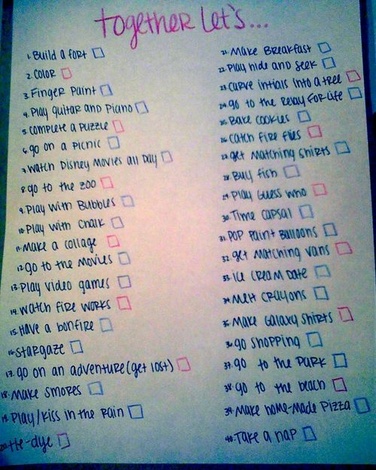 together Let's...
1. Build a fort
2. Color
3. Finger Paint
4. Play guitar and Piano
5. complete a Puzzle
6. go on a Picnic
7. Watch Disney Movies all Day
8. go to the zoo
9. Play with Bubbles
10. Play with Chalk
11. Make a collage
12. go to the movies
13. Play video games
14. watch fire works
15. Have a bonfire
16. stargaze
17. go on an adventure (get lost)
18. Make smores
19. Play/kiss in the rain
20. tie-dye
21. Make Breakfast
22. Play hide and seek
23. carve intials into a tree
24. go to the Relay For Life
25. Bake cookies
26. Catch Fire flies
27. get Matching shirts
28. Buy fish
29. Play Guess who
30. Time Capsal
31. POP Paint Balloons
32. get matching vans
33. ice cream Date
34. Melt crayons
35. Make Galaxy shirts
36. go shopping
37. go to the Park
38. go to the beach
39. Make home-made Pizza
40. Take a nap